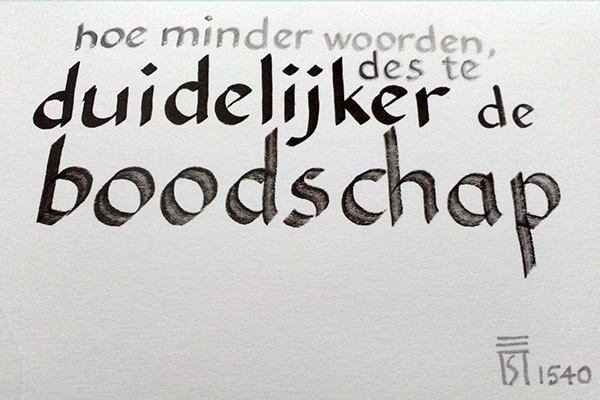 hoe minder woorden,
des te
duidelijker de
boodschap
1540